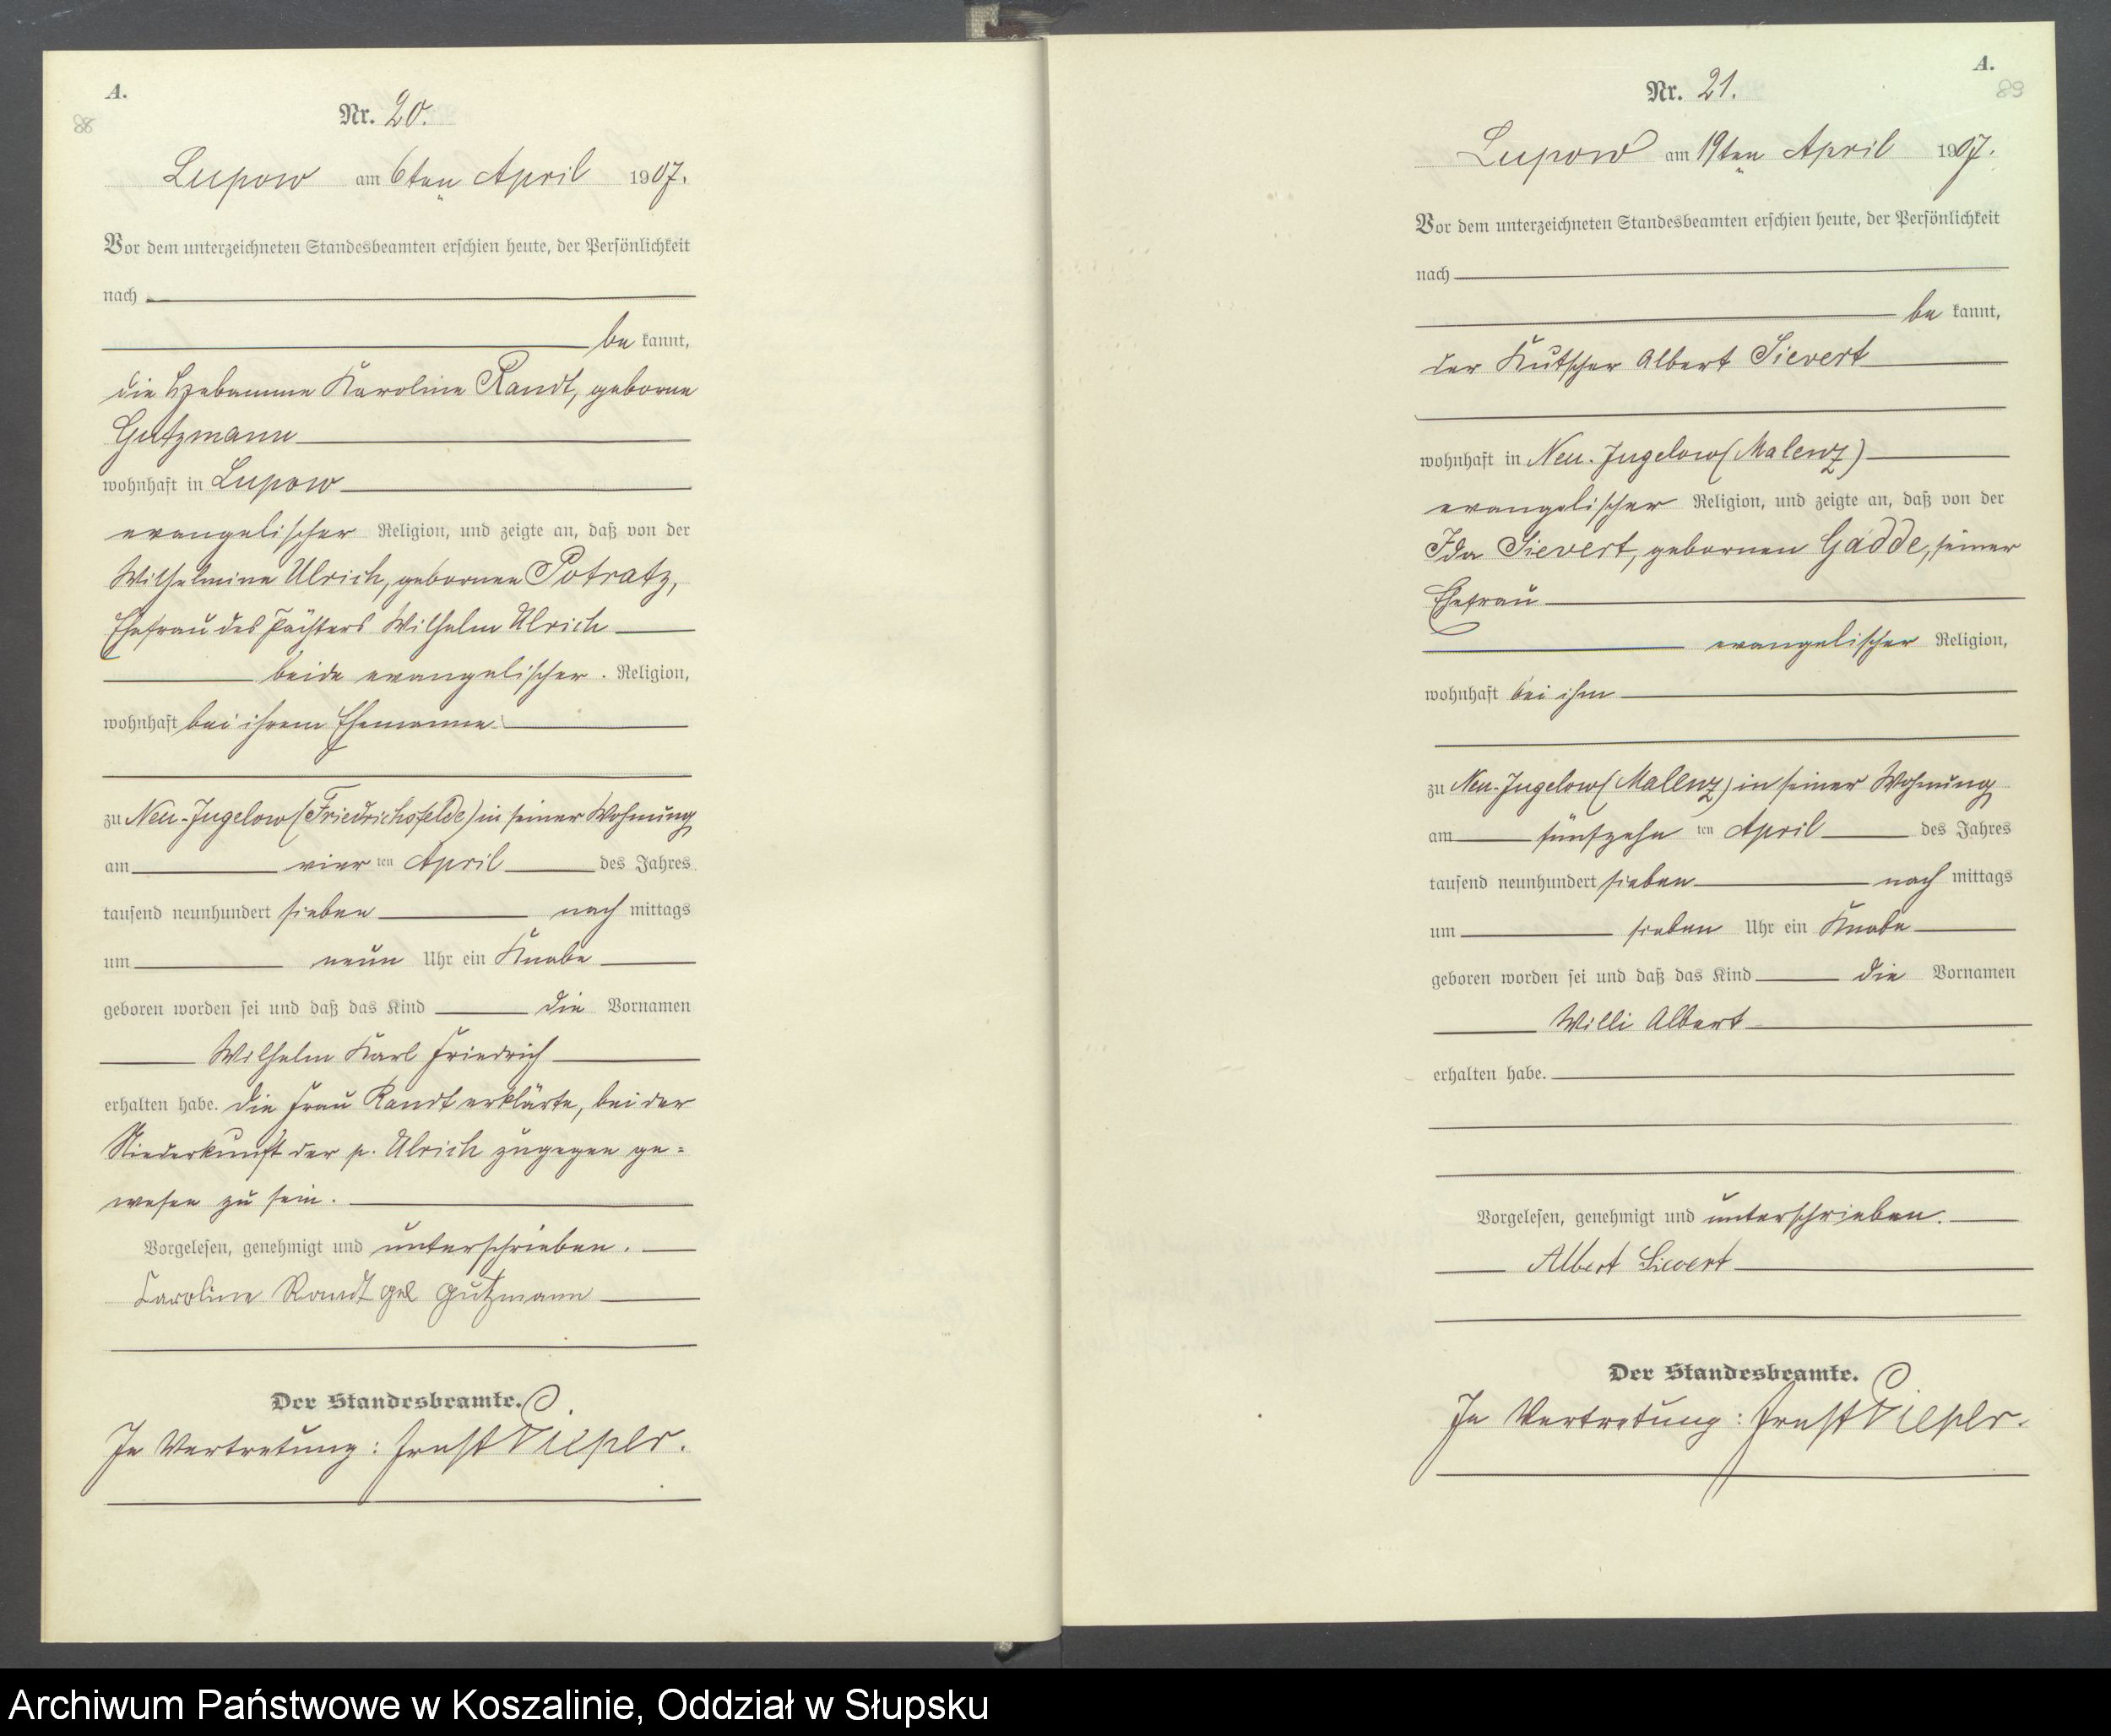 A.
88
Nr. 20.
Lupow am 6ten April 1907.
Vor dem unterzeichneten Standesbeamten erschien heute, der Persönlichkeit
nach
be kannt,
die Hebamme Karoline Randt, geborne
Gutzmann
wohnhaft in Lupow
evangelischer Religion, und zeigte an, daß von der
Wilhelmine Ulrich, gebornen Potratz,
Ehefrau des Pächters Wilhelm Ulrich
beide evangelischer . Religion,
wohnhaft bei ihrem Ehemanne
zu Neu-Jugelow (Friedrichsfelde) in seiner Wohnung
am vier ten April des Jahres
tausend neunhundert sieben nach mittags
um neun Uhr ein Knabe
geboren worden sei und daß das Kind die Vornamen
Wilhelm Karl Friedrich
erhalten habe. Die Frau Randt erklärte, bei der
Niederkunft der p. Ulrich zugegen ge=
wesen zu sein.
Vorgelesen, genehmigt und unterschrieben.
Caroline Randt geb Gutzmann
Der Standesbeamte.
In Vertretung: Ernst Piepkr.
A.
89
Nr. 21.
Lupow am 19ten April 1907.
Vor dem unterzeichneten Standesbeamten erschien heute, der Persönlichkeit
nach
be kannt,
der Kutscher Albert Sievert
wohnhaft in Neu-Jugelow (Malenz)
evangelischer Religion, und zeigte an, daß von der
Ida Sievert, gebornen Gadde, seiner
Ehefrau
evangelischer Religion,
wohnhaft bei ihm
zu Neu-Jugelow (Malenz) in seiner Wohnung
am fünfzehn ten April des Jahres
tausend neunhundert sieben nach mittags
um sieben Uhr ein Knabe
geboren worden sei und daß das Kind die Vornamen
Willi Albert
erhalten habe.
Vorgelesen, genehmigt und unterschrieben.
Albert Sievert
Der Standesbeamte.
In Vertretung: Ernst Piepkr.
Archiwum Państwowe w Koszalinie, Oddział w Słupsku